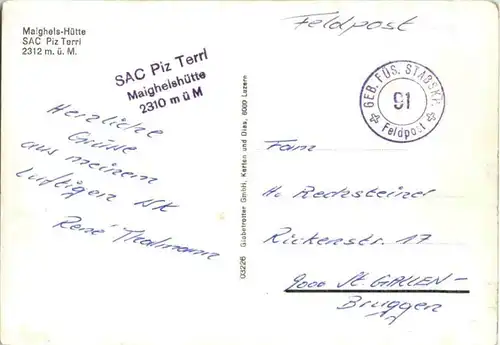 Maighels-Hütte
SAC Piz Terri
2312 m. ü. M.
Feldpost
SAC Piz Terri
Maighelshütte
2310 m ü M
GEB. FÜS. STABSKP.
91
Feldpost
Herzliche
Grüsse
aus meinem
luftigen WK
René Thalmann
03226 Globetrotter GmbH, Karten und Dias, 6000 Luzern
Fam
H. Rechsteiner
Rickenstr. 17
9000 St. GALLEN-
Bruggen